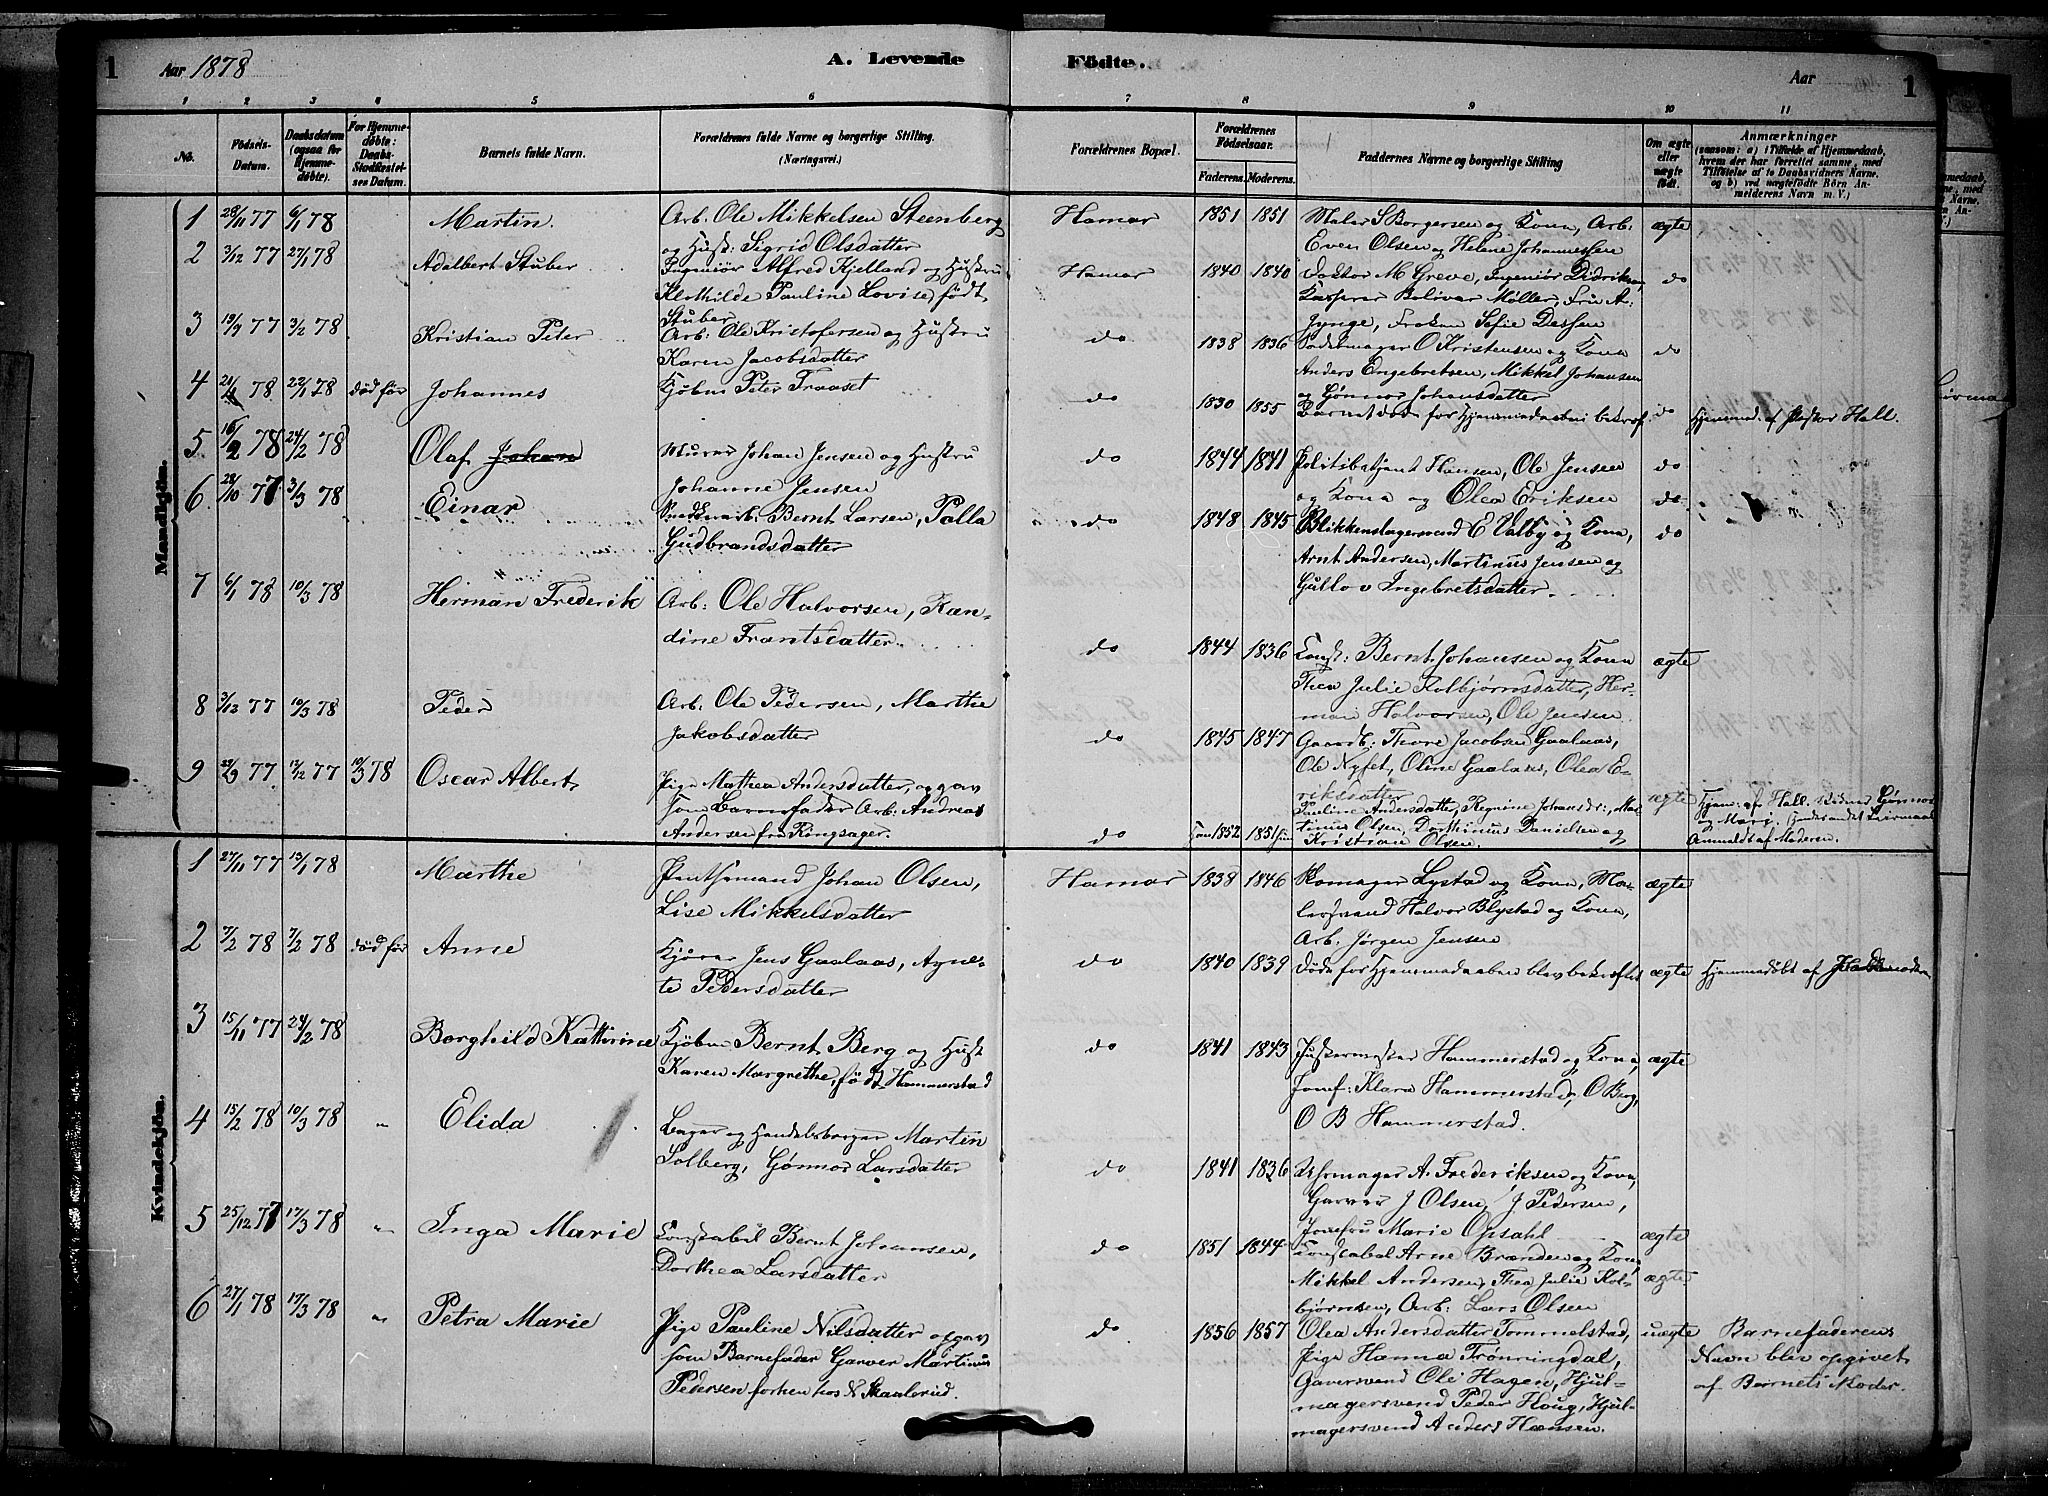 1 Aar 1878 A. Levende Fødte. Aar 1
1 2 3 4 5 6 7 8 9 10 11
No. Fødsels-Datum. Daabsdatum (ogsaa for Hjemmedøbte). For Hjemmedøbte: Daabs-Stadfæstelses Datum. Barnets fulde Navn. Forældrenes fulde Navne og borgerlige Stilling. (Næringsvei.) Forældrenes Bopæl. Forældrenes Fødselsaar. Faderens. Moderens. Faddernes Navne og borgerlige Stilling Om ægte eller uægte født. Anmærkninger (saasom: a) i Tilfælde af Hjemmedaab, hvem der har forrettet samme, med Tilføielse af to Daabsvidners Navne, og b) ved uægtefødte Børn Anmelderens Navn m. V.)
Mandkjøn.
1 28/11 77 6/1 78 Martin. Arb: Ole Mikkelsen Steenberg Hamar 1851 1851 Maler S Borgersen og Kona, Arb: ægte
og Hust: Sigrid Olsdatter Even Olsen og Helene Johannessen
2 3/12 77 27/1 78 Adalbert Stuber Ingeniør Alfred Kjelland og Hustru Hamar 1840 1840 Doktor M Greve, Ingeniør Didriksen, do
Klothilde Pauline Lovise, født Kasserer Bolivar Møller, Fru A.
Stuber Jynge, Frøken Sofie Dessen
3 19/7 77 3/2 78 Kristian Peter Arb: Ole Kristofersen og Hustru do 1838 1836 Sadelmager O Kristensen og Kona do
Karen Jacobsdatter Anders Engebretsen, Mikkel Johansen
og Gønnor Johansdatter
4 21/1 78 22/1 78 død før Johannes Kjøbm Peter Fraaset do 1830 1855 Barnet døde før Hjemmedaaben bekræf. do Hjemmed. af Pastor Hall.
5 16/2 78 24/2 78 Olaf Johan Murer Johan Jensen og Hustru do 1844 1841 Politibetjent Hansen, Ole Jensen do
Johanne Jensen og Kona og Olea Eriksen do
6 28/10 77 3/3 78 Einar Snedkerarb: Bernt Larsen, Palla do 1848 1845 Blikkenslagersvend E Valby og Kona, do
Gudbrandsdatter Arnt Andersen, Martinus Jensen og
Gullov Ingebretsdatter.
7 6/1 78 10/3 78 Herman Frederik Arb: Ole Halvorsen, Kan-
dine Frantsdatter. do 1844 1836 Konst: Bernt Johansen og Kona ægte
Thea Julie Kolbjørnsdatter, Her-
man Halvorsen, Ole Jensen.
8 3/12 77 10/3 78 Peder Arb: Ole Pedersen, Marthe
Jakobsdatter do 1845 1847 Gaardb: Thore Jacobsen Gaalaas,
Ole Nyfet, Oline Gaalaas, Olea E-
riksdatter ægte
9 22/9 77 17/12 77 10/3 78 Oscar Albert Pige Mathea Andersdatter, opgav
som Barnefader Arb: Andreas
Andersen fra Ringsager. do Ham 1852 1851 Pauline Andersdatter, Regnine Johansdr:, Mar-
tinus Olsen, Dorthinus Danielsen og
Kristian Olsen. Hjem: af Hall. Vidner Gønnor
og Marj.
Anmeldt af Moderen.
Kvindekjøn.
1 27/11 77 13/1 78 Marthe Pantsemand Johan Olsen, Hamar 1838 1846 Skomager Lystad og Kona, Ma- ægte
Lise Mikkelsdatter lersvend Halvor Blystad og Kona,
Arb. Jørgen Jensen
2 7/2 78 7/2 78 død før Anne Kjører Jens Gaalaas, Agne- do 1840 1839 Døde før Hjemmedaaben blev bekræftet ægte Hjemmedøbt af
te Pedersdatter
3 15/11 77 24/2 78 Borghild Kathrine Kjøbm Bernt Berg og Hust do 1841 1843 Hammerstad og Kona, ægte
Karen Margrethe, født Hammerstad Jomf: Klara Hammerstad, O Berg,
O B Hammerstad.
4 15/2 78 10/3 78 " Elida Bager og Handelsborger Martin
Solberg, Gønnor Larsdatter do 1841 1836 Uhrmager A. Frederiksen og Kona,
Garver J Olsen, J Pedersen,
Jomfru Marie Opsahl ægte
5 25/12 77 17/3 78 " Inga Marie Konstabel Bernt Johansen, do 1851 1844 Konstabel Arne Brænden og Kona,
Dorthea Larsdatter Mikkel Andersen, Thea Julie Kol- ægte
bjørnsen, Arb: Lars Olsen
6 27/1 78 17/3 78 " Petra Marie Pige Pauline Nilsdatter opgav do 1856 1857 Olea Andersdatter Tommelstad, uægte Barnefaderens
som Barnefader Garver Martinus Pige Hanna Trønningdal, Navn blev opgivet
Pedersen forhen hos N Skaalerud. Garversvend Ole Hagen, Hjul- af Barnets Moder.
magersvend Peder Houg, Hjul-
magersvend Anders Hansen.